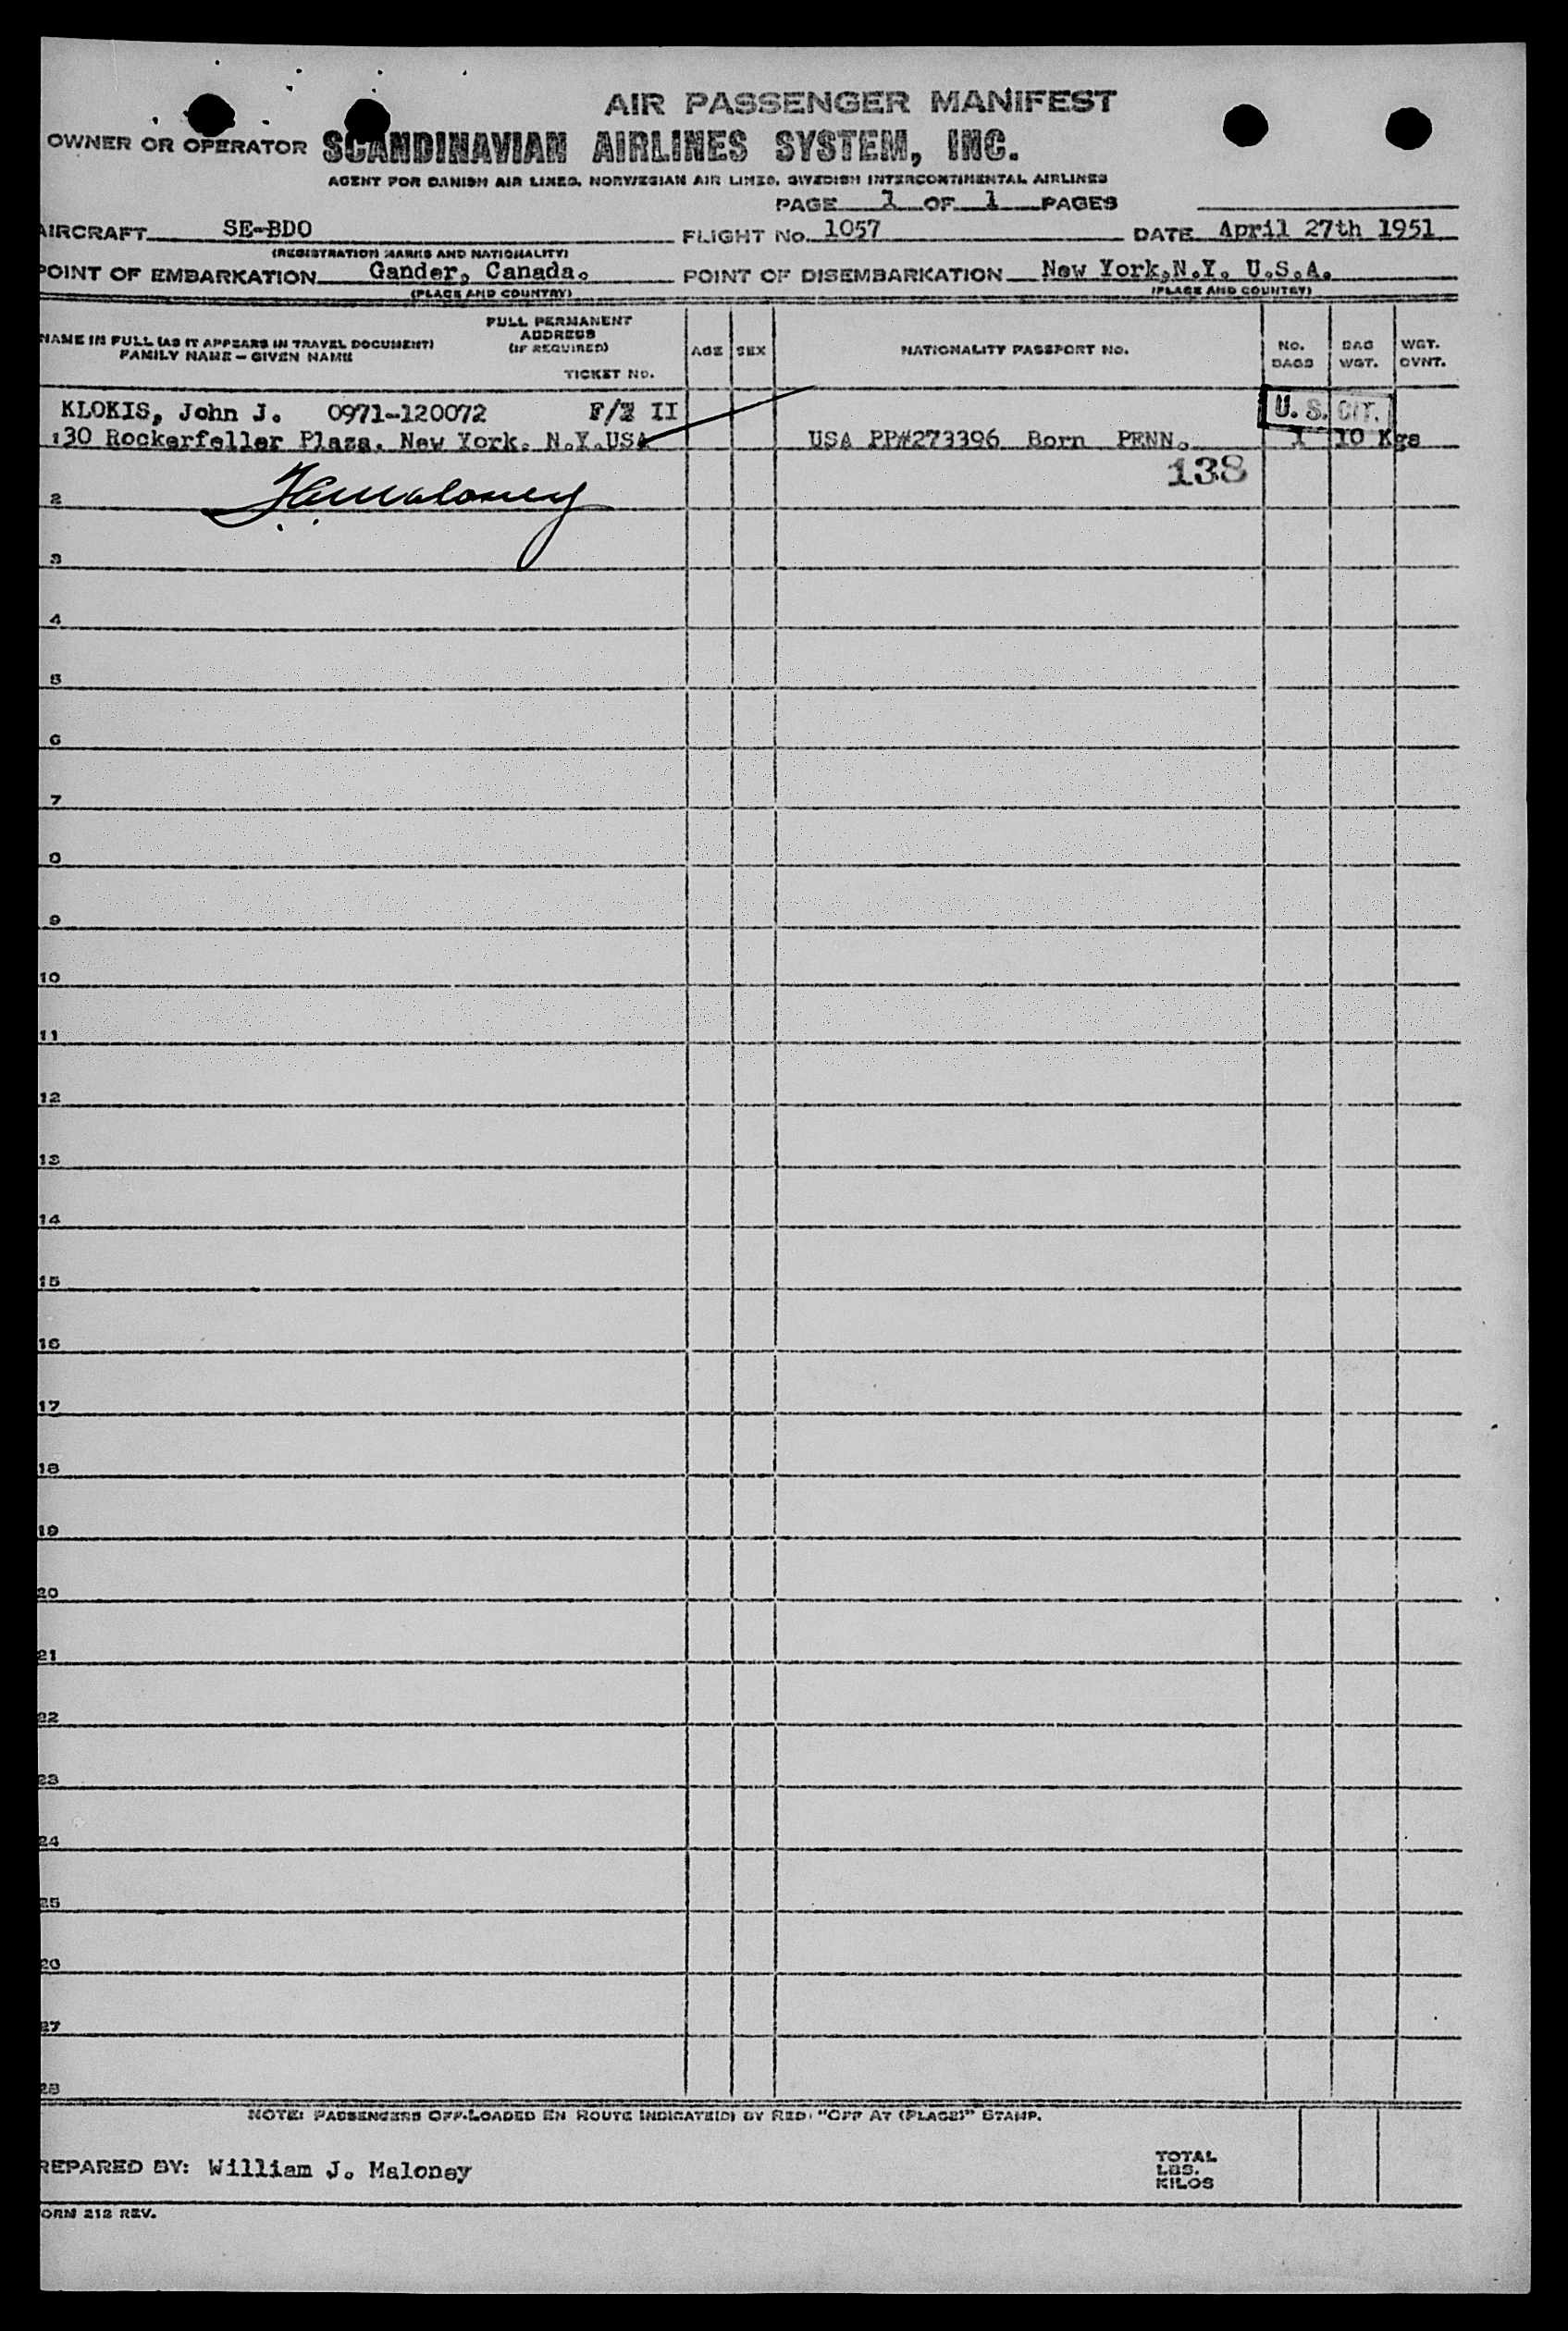 AIR PASSENGER MANIFEST
OWNER OR OPERATOR SCANDINAVIAN AIRLINES SYSTEM, INC.
AGENT FOR DANISH AIR LINES, NORWEGIAN AIR LINES, SWEDISH INTERCONTINENTAL AIRLINES
PAGE 1 OF 1 PAGES
AIRCRAFT SE-BDO FLIGHT No. 1057 DATE April 27th 1951
(REGISTRATION MARKS AND NATIONALITY)
POINT OF EMBARKATION Gander, Canada. POINT OF DISEMBARKATION New York,N.Y. U.S.A.
(PLACE AND COUNTRY) (PLACE AND COUNTRY)
NAME IN FULL (AS IT APPEARS IN TRAVEL DOCUMENT)
FAMILY NAME – GIVEN NAME
FULL PERMANENT
ADDRESS
(IF REQUIRED)
TICKET No.
AGE SEX NATIONALITY PASSPORT No. NO. BAGS BAG WGT. WGT. OVNT.
KLOKIS, John J. 0971-120072 II U. S. CIT.
30 Rockerfeller Plaza. New York. N.Y.USA USA PP#273396 Born PENN. 1 10 Kgs
138
2
3
4
5
6
7
8
9
10
11
12
13
14
15
16
17
18
19
20
21
22
23
24
25
26
27
28
NOTE: PASSENGERS OFF-LOADED EN ROUTE INDICATE(D) BY RED "OFF AT (PLACE)" STAMP.
REPARED BY: William J. Maloney
TOTAL
LBS.
KILOS
ORM 212 REV.